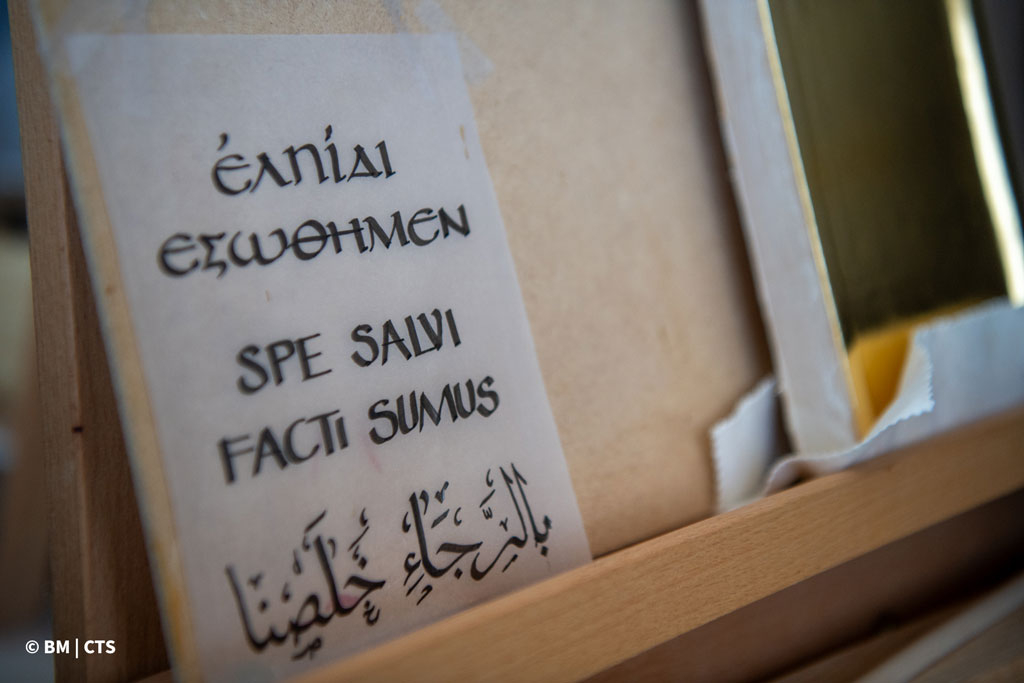 ἐλπίδι
εσωθημεν
SPE SALVI
FACTI SUMUS
بِالرَّجَاءِ خَلِّصْنَا
© BM | CTS